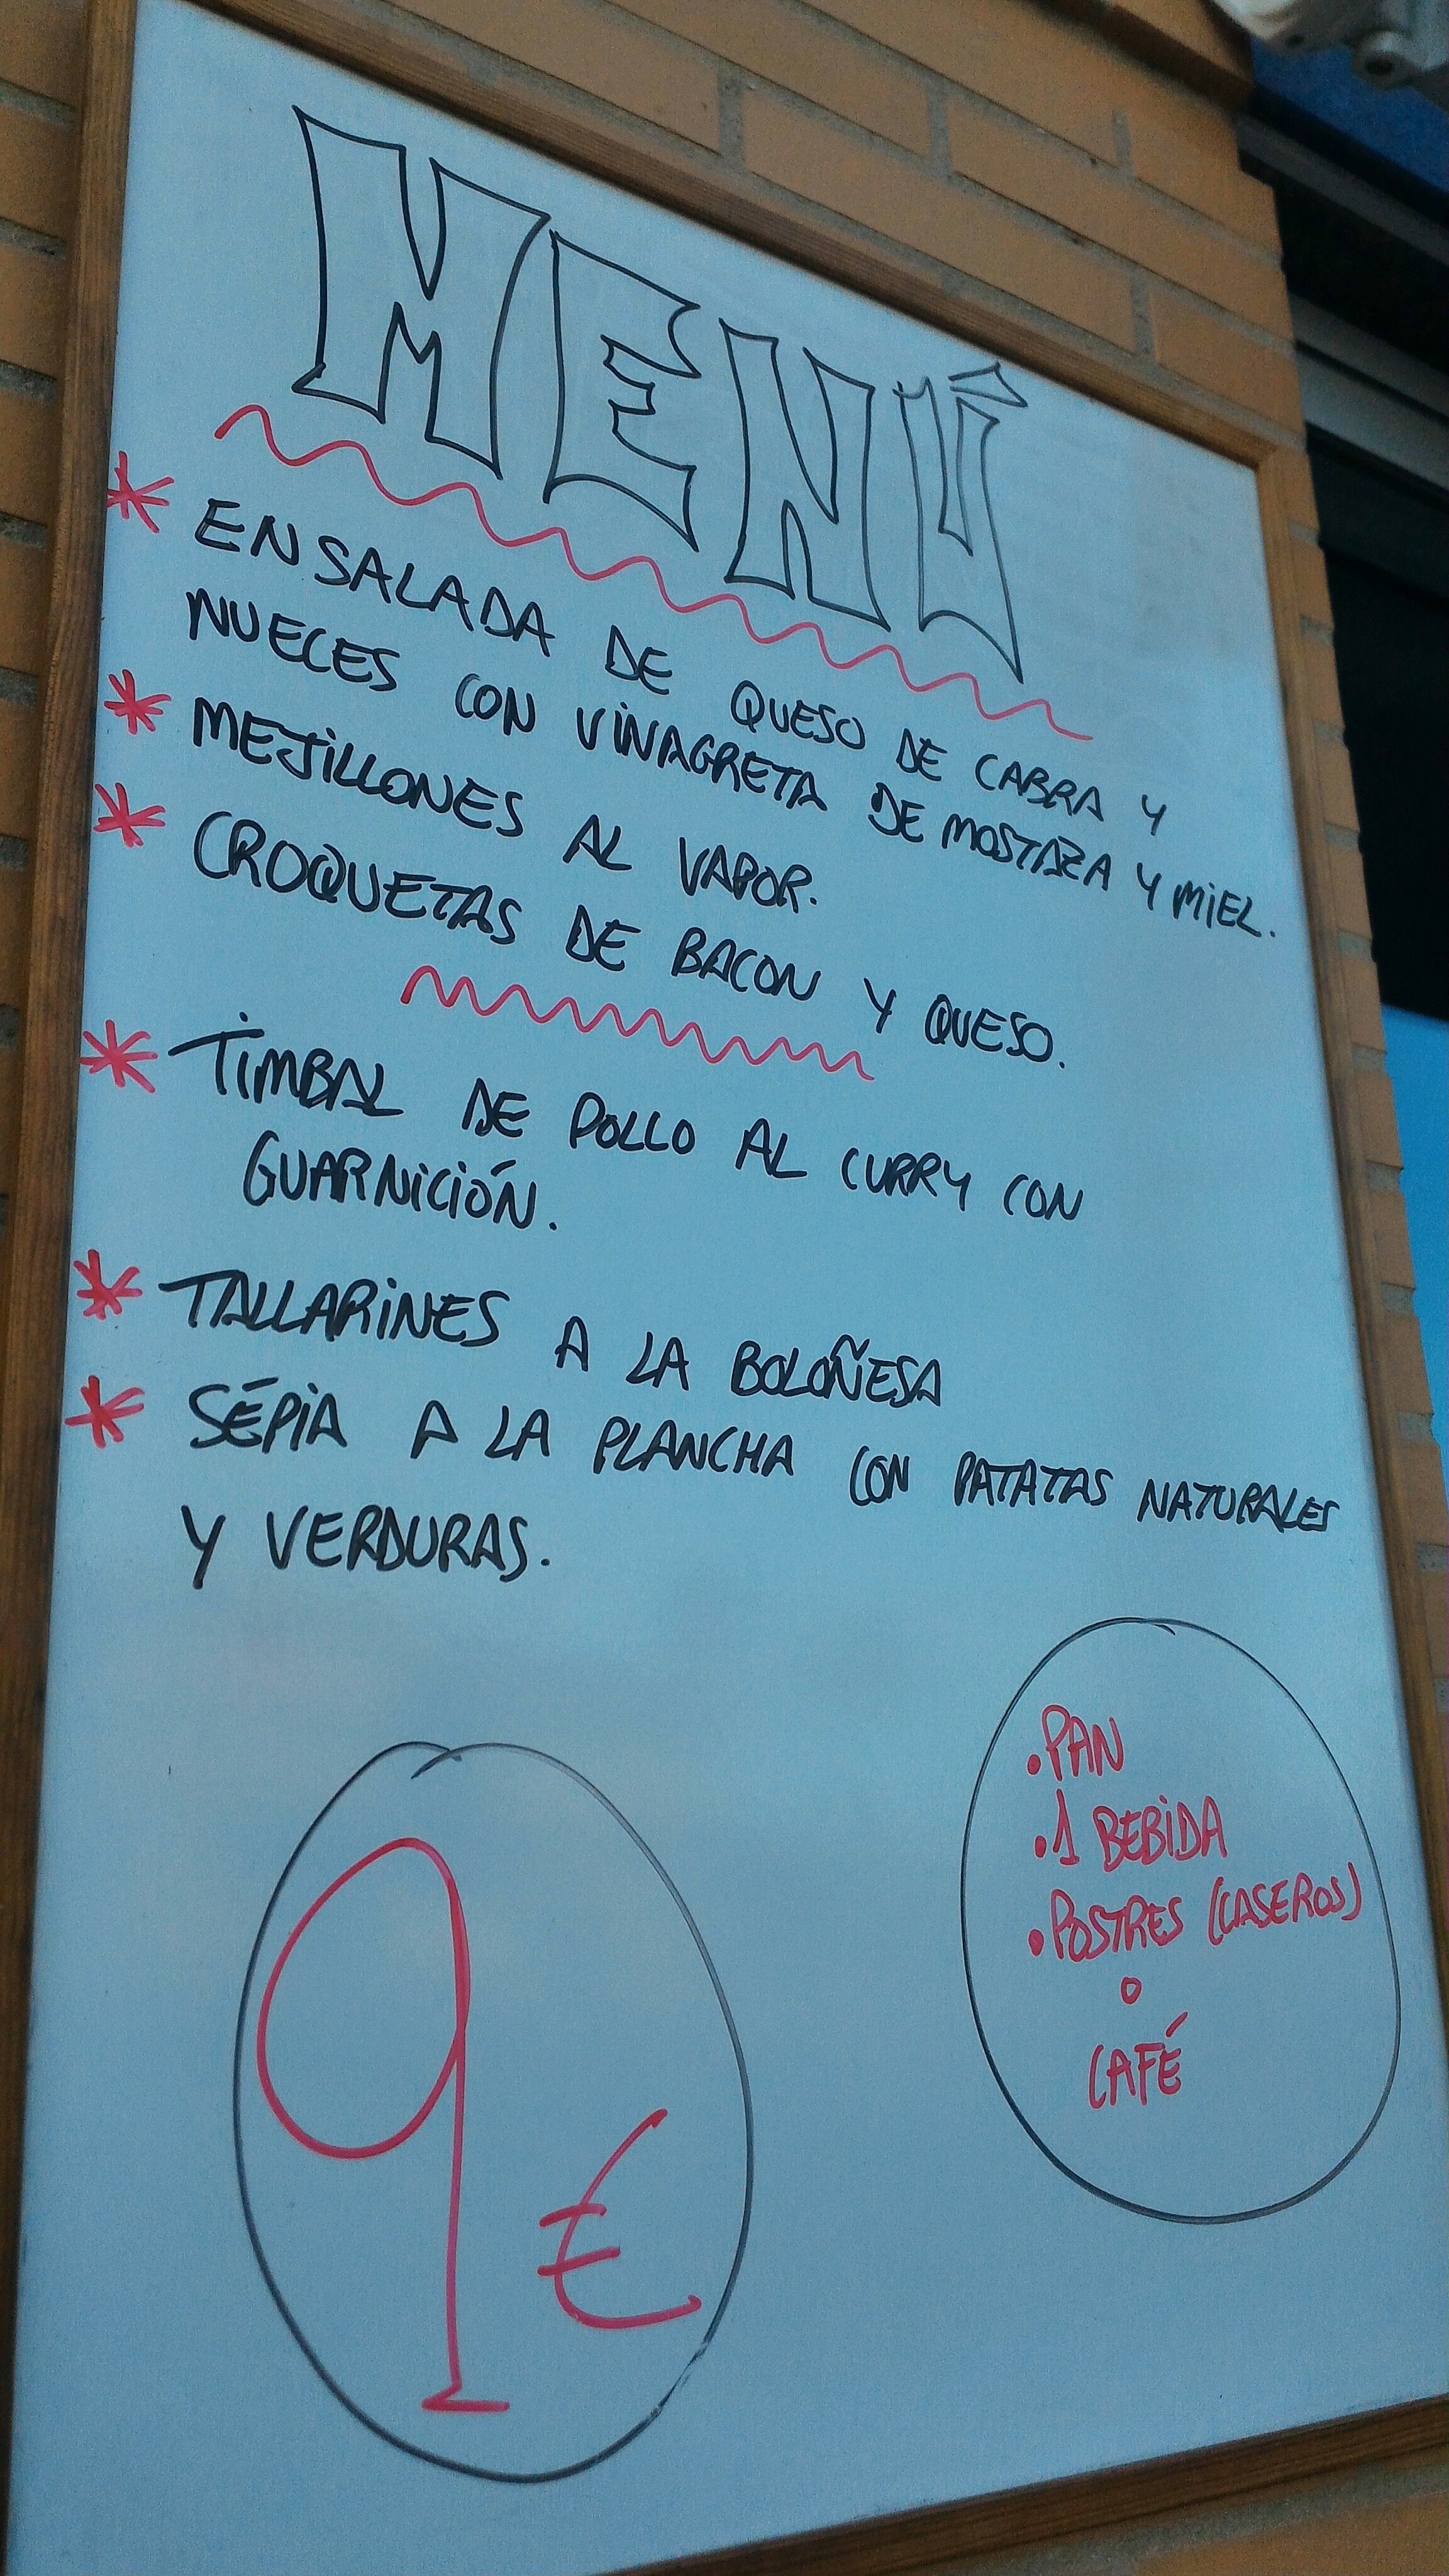 MENÚ
* ENSALADA DE QUESO DE CABRA Y
NUECES CON VINAGRETA DE MOSTAZA Y MIEL.
* MEJILLONES AL VAPOR.
* CROQUETAS DE BACON Y QUESO.
* TIMBAL DE POLLO AL CURRY CON
GUARNICIÓN.
* TALLARINES A LA BOLOÑESA
* SÉPIA A LA PLANCHA CON PATATAS NATURALES
Y VERDURAS.
• PAN
• 1 BEBIDA
• POSTRES (CASEROS)
O
CAFÉ
9 €